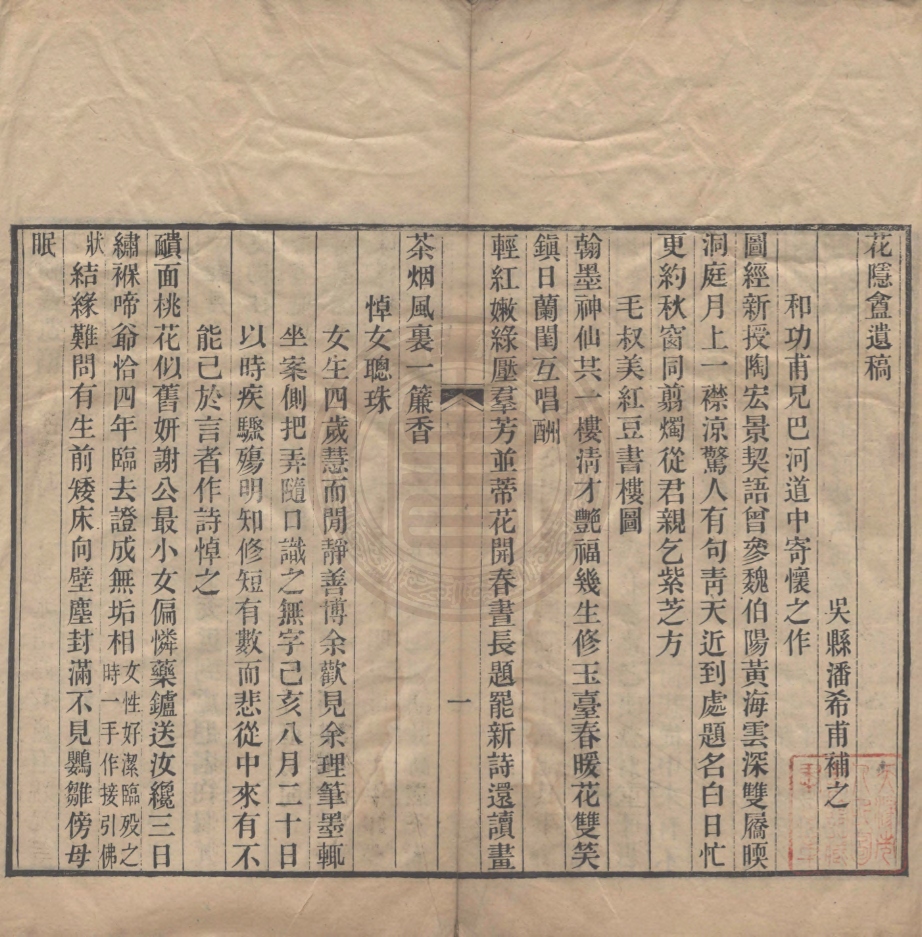 花隱盦遺稿
吳縣潘希甫補之
和功甫兄巴河道中寄懷之作
圖經新授陶宏景契語曾參魏伯陽黃海雲深雙屩㬉
洞庭月上一襟涼驚人有句青天近到處題名白日忙
更約秋窗同翦燭從君親乞紫芝方
毛叔美紅豆書樓圖
翰墨神仙共一樓清才艷福幾生修玉臺春暖花雙笑
鎮日蘭閨互唱酬
輕紅嫩綠壓羣芳並蒂花開春晝長題罷新詩還讀畫
一
茶烟風裏一簾香
悼女聰珠
女生四歲慧而閒靜善博余歡見余理筆墨輒
坐案側把弄隨口識之無字己亥八月二十日
以時疾驟殤明知修短有數而悲從中來有不
能已於言者作詩悼之
靧面桃花似舊妍謝公最小女偏憐藥鑪送汝纔三日
繡褓啼爺恰四年臨去證成無垢相女性好潔臨歿之時一手作接引佛
狀結緣難問有生前矮床向壁塵封滿不見鸚雛傍母
眠